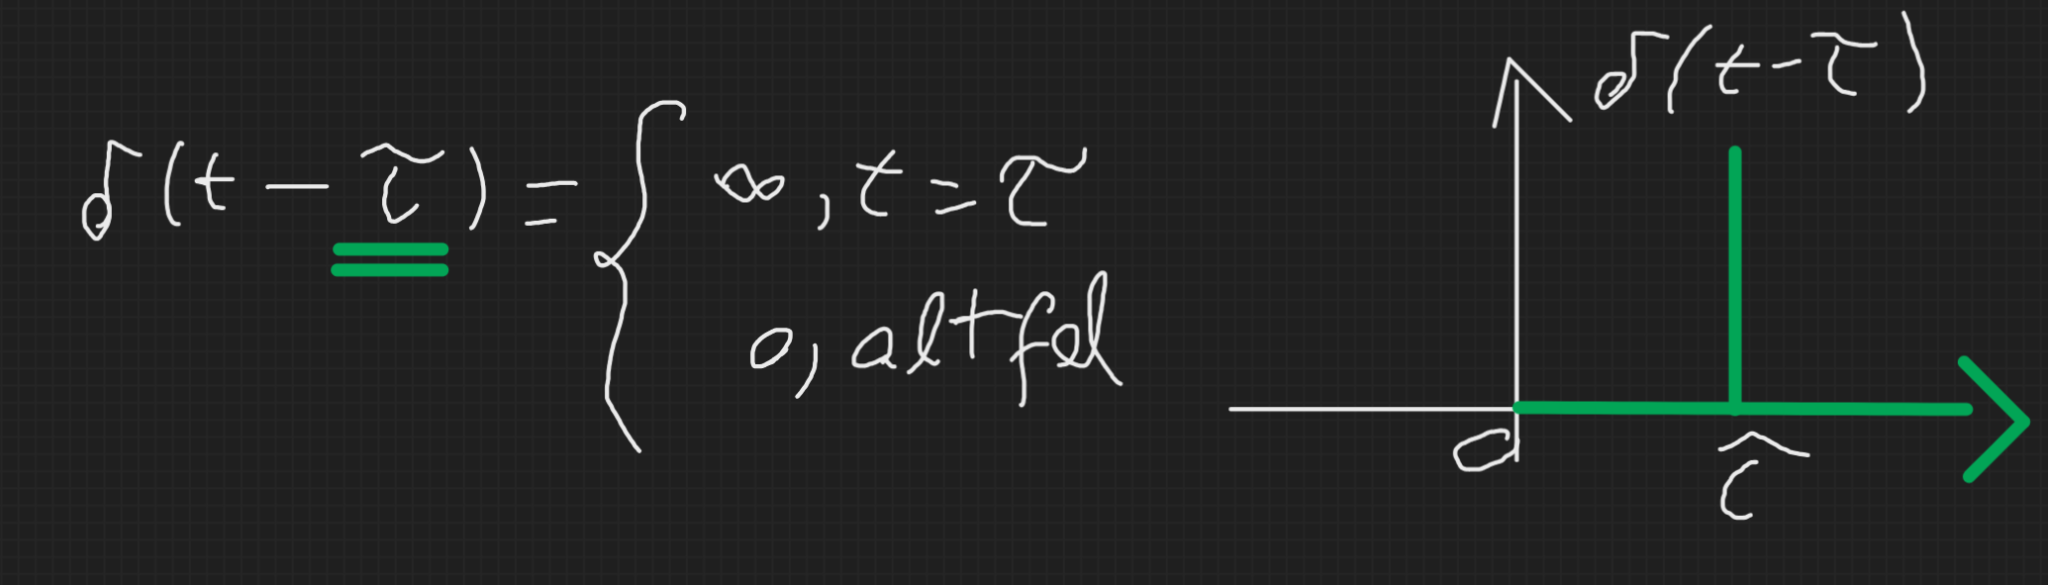 δ(t − τ) = { ∞, t = τ
0, altfel
δ(t − τ)
0
τ